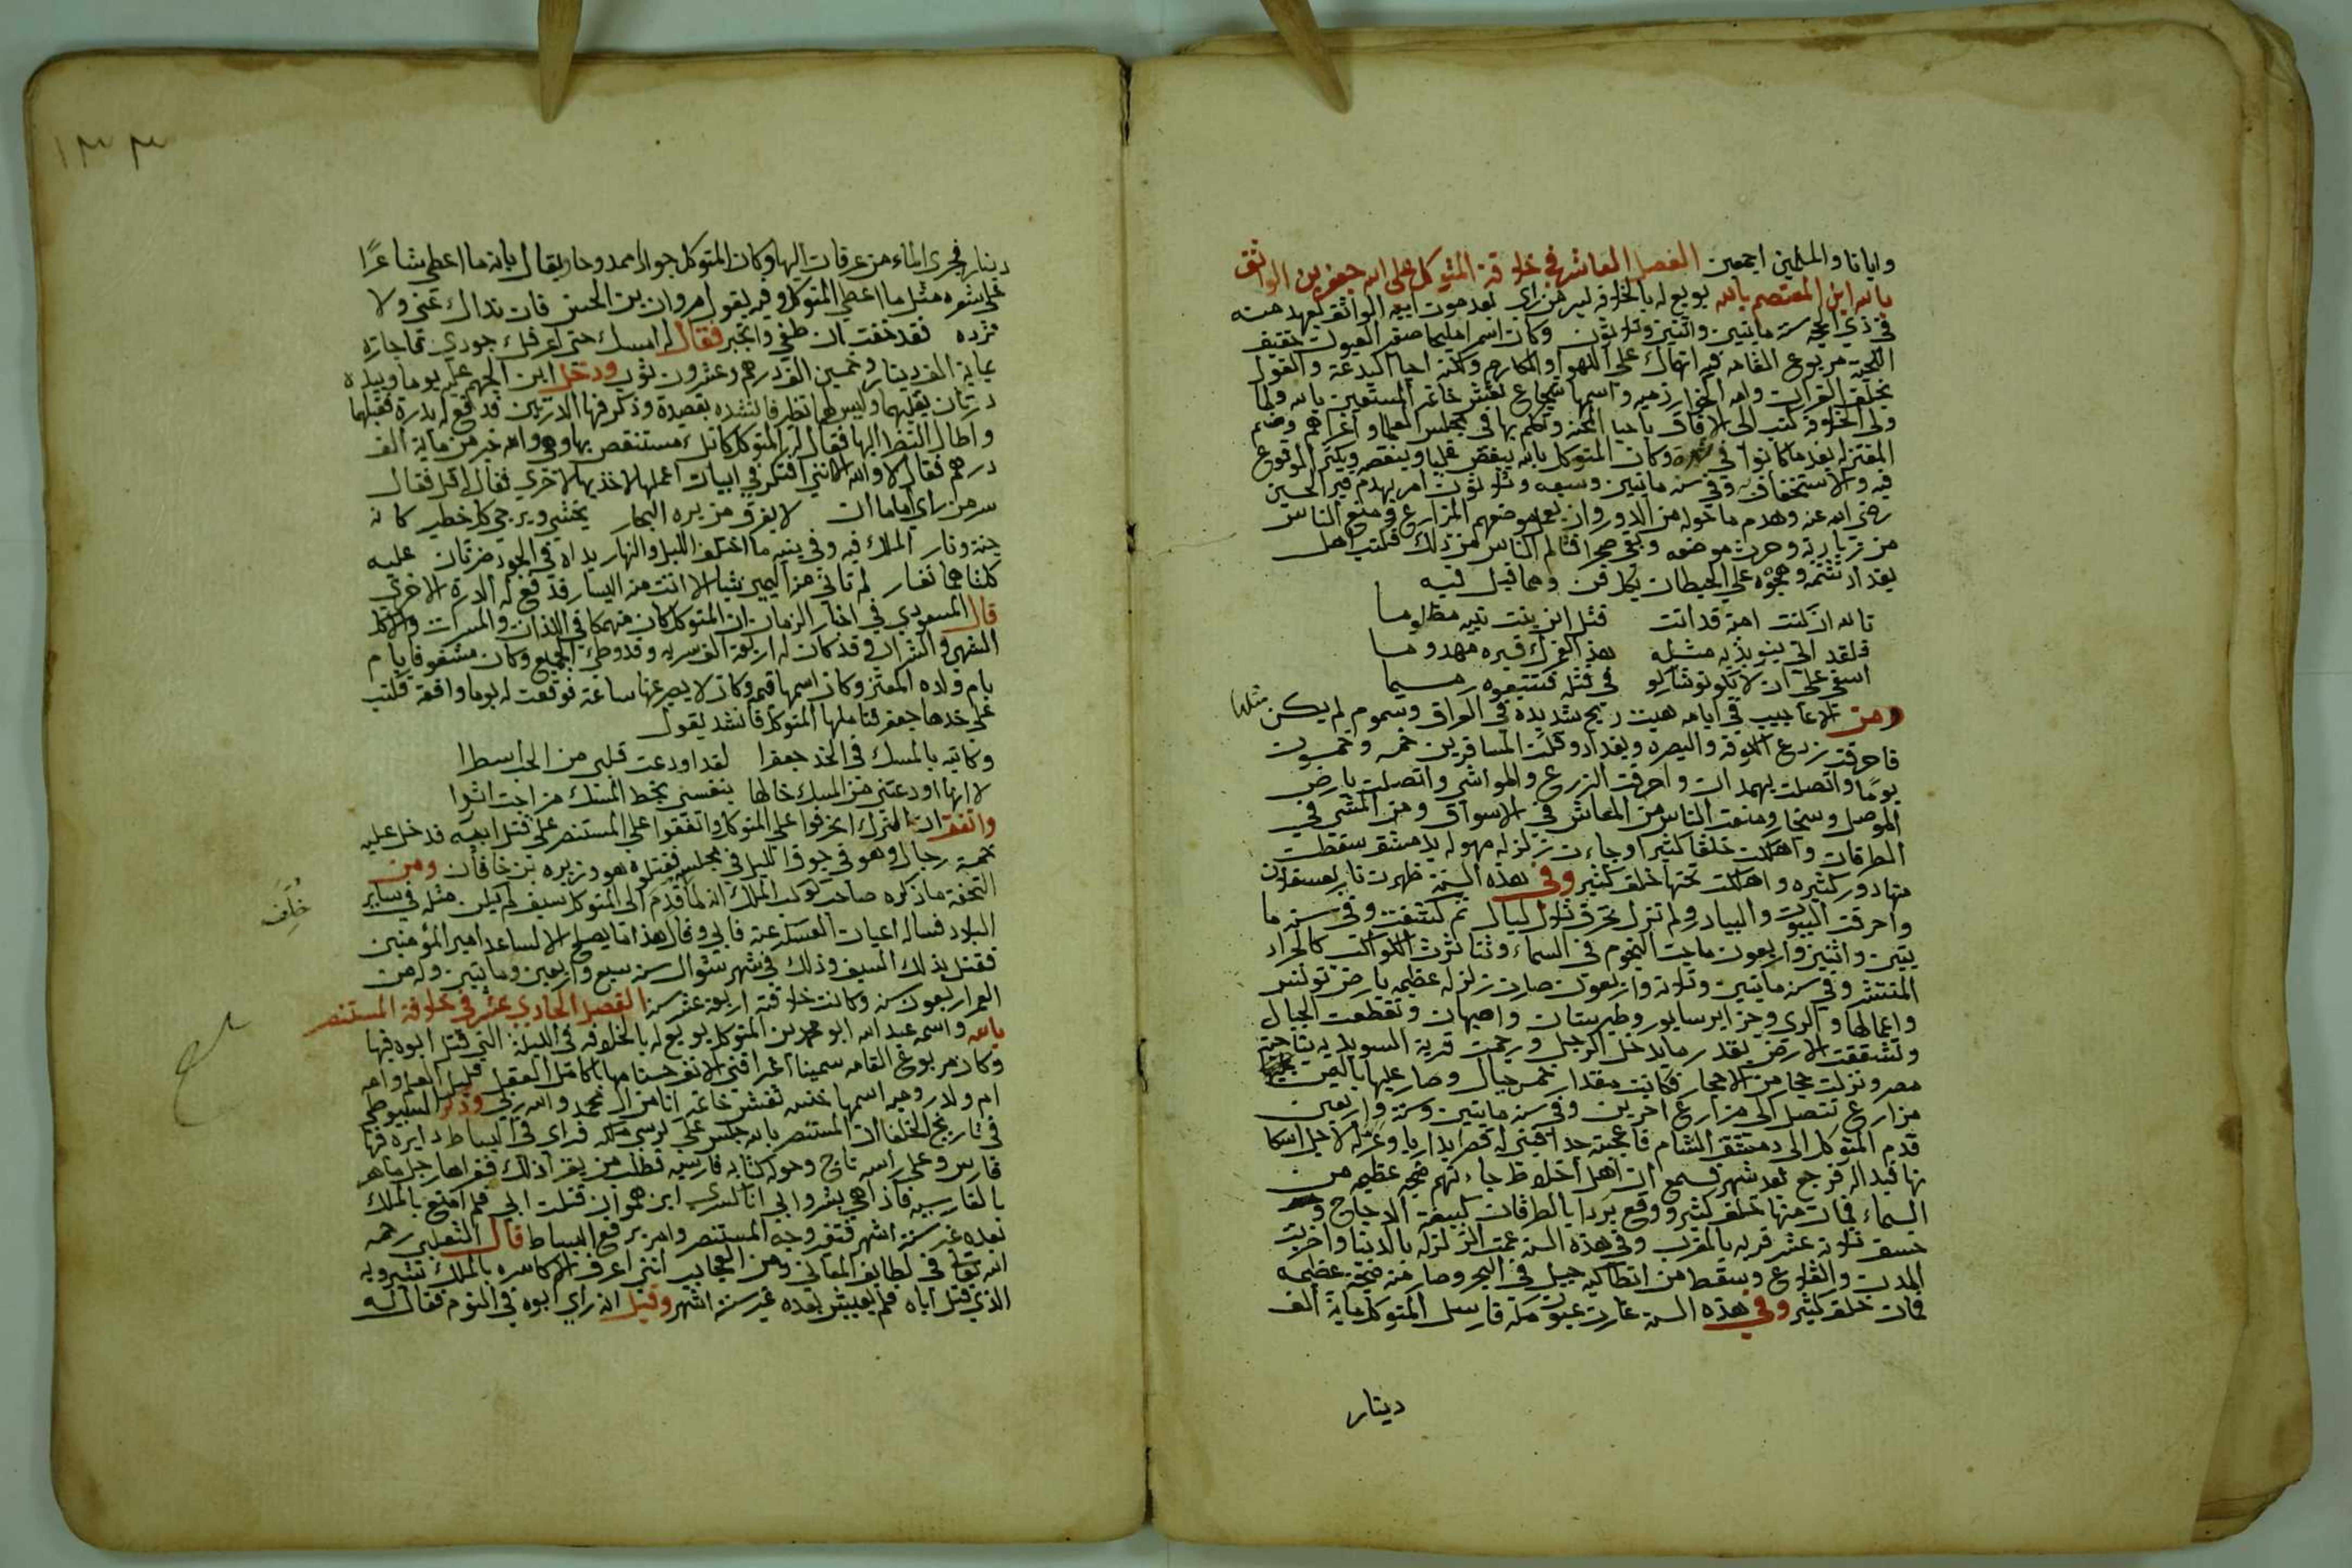 وايانا والمسلمين اجمعين الفصل العاشر في خلافة المتوكل على الله جعفر بن الواثق
بالله ابن المعتصم بالله بويع له بالخلافة لسر من راي بعد موت ابيه الواثق بعهد منه
في ذي الحجه سنة مايتين واثنين وثلاثون وكان اسمر مليما صغر العيون خفيف
اللحية مربوع القامه فيه انهماك على اللهو والمكارم ولكنه احيا البدعة والقول
بخلق القران وامه الخوارزميه واسمها شجاع نقش خاتمه المستعين بالله ولما
ولي الخلافة كتب الى الافاق باحيا المحنة وتكلم بها في مجلس العلما واعزاهم وضم
المعتزله بعد ما كانوا في وكان المتوكل بالله يبغض عليا وينقصه ويكثر الوقوع
فيه والاستخفاف به وفي سنة مايتين وسبعه وثلاثون امر بهدم قبر الحسين
رضي الله عنه وهدم ما حوله من الدور وان يعمل موضعهم المزارع ومنع الناس
من زيارته وحرث موضعه وبقي صحرا فتالم الناس من ذلك فكتب اهل
بغداد شتمه وهجوه على الحيطان بكل فن ومما قيل فيه
تالله ان كنت امية قد اتت قتل ابن بنت نبيه مظلوما
فلقد اتى بنو بذيه مثله هذا لعمرك قبره مهدوما
اسفي على ان لا يكونو شاركو في قتله فتتبعوه رميما
ومن الاعاجيب في ايامه هبت ريح شديدة في العراق وسموم لم يكن مثلها
فاحرقت زرع الكوفه والبصره وبغداد وقتلت المسافرين خمسه وخمسون
يوما واتصلت بهمدان واحرقت الزرع والمواشي واتصلت بارض
الموصل وسنجار ومنعت الناس من المعاش في الاسواق ومن المشي في
الطرقات واهلكت خلقا كثيرا وجاءت زلزله مهوله بدمشق سقطت
منها دور كثيره واهلكت تحتها خلق كثير وفي هذه السنة ظهرت نار بعسقلان
واحرقت البيوت والبيادر ولم تزل تحرق ثلاث ليال ثم كشفت وفي سنة ما
يتين واثنين واربعون ماجت النجوم في السماء وتناثرت الكواكب كالجراد
المنتشر وفي سنة مايتين وثلاثه واربعون صارت زلزله عظيمه بارض تونس
واعمالها والري وجزاير سابور وطبرستان واصبهان وتقطعت الجبال
وتشققت الارض بقدر ما يدخل الرجل ورجمت قرية السويديه بناحية
مصر ونزلت حجارة من الاحجار فكانت مقدار خمس جبال وصار عليها باليمن
مزارع تتصل الى مزارع اخرين وفي سنة مايتين وستة واربعين
قدم المتوكل الى دمشق الشام فاعجبته جدا فبنى له قصر بداريا وعزم لاجل اسكا
نها فبدا له فرجع بعد شهر فسمع ان اهل اخلاط جاءتهم صيحه عظيمه من
السماء فمات منها خلق كثير ووقع بردا بالطرقات كبيضة الدجاج و
خسف ثلاثة عشر قريه بالمغرب وفي هذه السنة عمت الزلزله بالدنيا واخربت
المدن والقلاع وسقط من انطاكيه جبل في البحر وصار منه ضجة عظيمه
فمات خلق كثير وفي هذه السنة غارت عيون مكة فارسل المتوكل ماية الف
دينار
١٣٣
دينار فجرى الماء من عرفات اليها وكان المتوكل جوادا ممدوحا ويقال بانه ما اعطى شاعرًا
على شعره مثل ما اعطى المتوكل وفيه يقول مروان بن الحسن فان نداك عني ولا
تزده فقد خفت ان اطغى واتجبر فقال له امسك حتى اغرقك جودي ثم اجازه
بماية الف دينار وخمسين الف درهم وعشرون ثوب ودخل ابن الجهم عليه يوما وبيده
درتان يقلبهما وليس لهما نظير فانشده بقصيدة وذكر فيها الدرتين فدفع له بدرة فقبلها
واطال النظر اليها فقال له المتوكل كانك مستنقص بها وهي والله خير من ماية الف
درهم فقال لا والله لكنني افتكر في ابيات اعملها لاخذ بها الاخرى فقال له قل فقال
سر من راي اماما ات لا يغرق من بره البحار يختشى ويرجى كل خطير كانه
جنة ونار الملك فيه وفي بنيه ما اختلف الليل والنهار يداه في الجود ضرتان عليه
كلتاهما تغار لم تاتي من اليمين شيا الا اتت من اليسار فدفع له الدرة الاخرى
قال المسعودي في اخبار الزمان ان المتوكل كان منهمكا في اللذات والمسرات والاكل
الشهي والشراب وقد كان له اربعة الف سريه وقد وطئ الجميع وكان مشغوفا بام
بام ولده المعتز وكان اسمها قبيحه وكان لا يصبر عنها ساعة فوقفت له يوما واقفة فكتب
على خدها جعفر فتاملها المتوكل فانشد يقول
وكاتبه بالمسك في الخد جعفرا لقد اودعت قلبي من الحب اسطرا
لانها اودعتني من المسك خالها بنفسي بخط المسك من اجت اثرا
واتفق ان الترك انحرفوا على المتوكل واتفقوا على المستنصر على قتل ابيه فدخل عليه
خمسة رجال وهو في جوف الليل في مجلسه فقتلوه هو وزيره بن خاقان ومن
التحفة ما ذكره صاحب كوكب الملك انه لما قدم الى المتوكل سيف لم يكن مثله في ساير
البلاد فساله اعيان العسكر عنه فابي وقال هذا ما يصلح الا لساعد امير المؤمنين
فقتل بذلك السيف وذلك في شهر شوال سنة سبع واربعين ومايتين وله من
خلف
العمر اربعون سنة وكانت خلافته اربعة عشر سنة الفصل الحادي عشر في خلافة المستنصر
بالله واسمه عبد الله ابو محمد بن المتوكل بويع له بالخلافه في الليلة التي قتل ابوه فيها
وكان مربوع القامه سمينا اعرا قني الانف حسنا مهابا كامل العقل قليل الظلم وامه
ام ولد روميه اسمها حبشه نقش خاتمه انا من ال محمد والله ربي وذكر السيوطي
في تاريخ الخلفا ان المستنصر بالله جلس على كرسي ملكه فراى في البساط دايره فيها
فارس وعلى راسه تاج وحوله كتابه فارسيه فطلب من يقرا ذلك فقراها رجل ماهر
بالفارسيه فاذا هي بشروا بي انا كسرى ابن هرموان قتلت ابي فلم اتمتع بالملك
بعده غير ستة اشهر فتغير وجه المستنصر وامر برفع البساط قال الثعلبي رحمه
الله تعالى في لطايف المعاني ومن العجايب انني اعرف الاكاسره بالملك شيرويه
الذي قتل اباه فلم يعيش بعده غير ستة اشهر وقيل انه راى ابوه في النوم فقال له